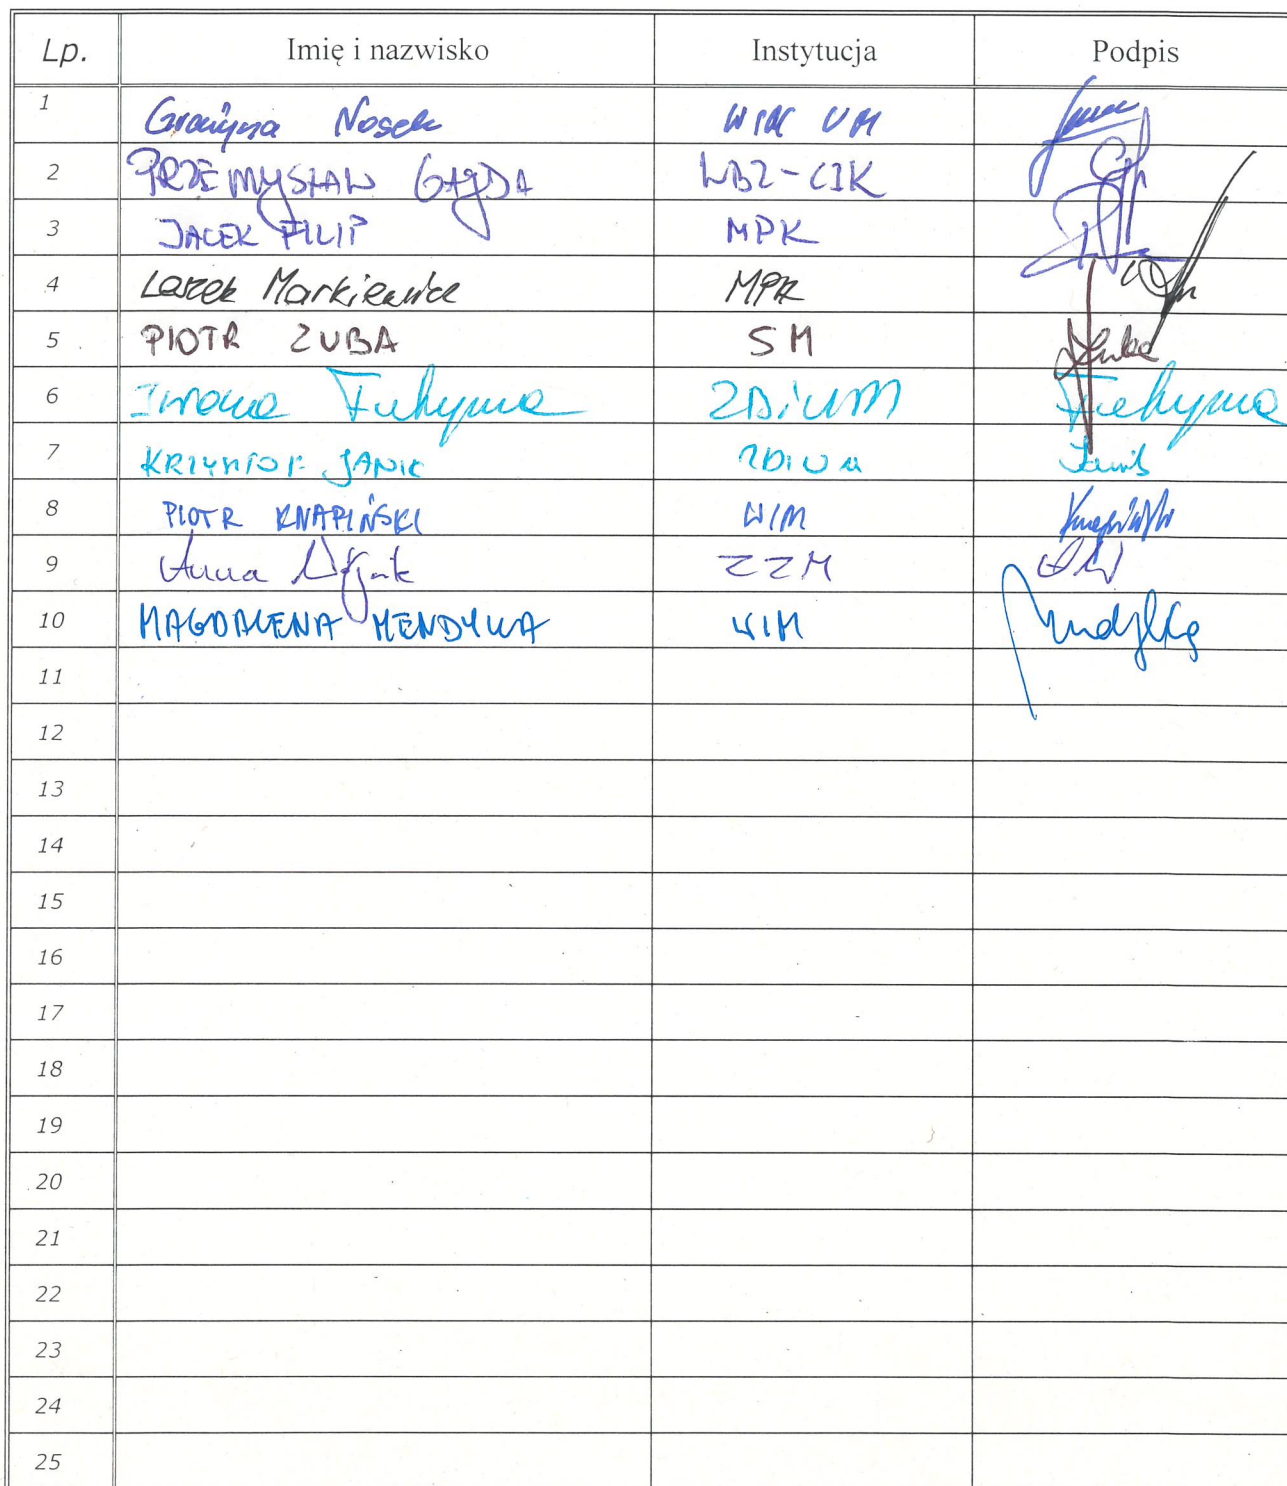 Lp. Imię i nazwisko Instytucja Podpis
1 Grażyna Nosek WIM UM
2 PRZEMYSŁAW GAJDA WBZ-CZK
3 JACEK FILIP MPK
4 Leszek Markiewicz MPK
5 PIOTR ZUBA SM Zuba
6 Iwona Fuhyma ZDiUM Fuhyma
7 KRZYSZTOF JANIK ZDiUM Janik
8 PIOTR KNAPIŃSKI WIM Knapiński
9 Anna ZZM
10 MAGDALENA MENDYKA WIM Mendyka
11
12
13
14
15
16
17
18
19
20
21
22
23
24
25